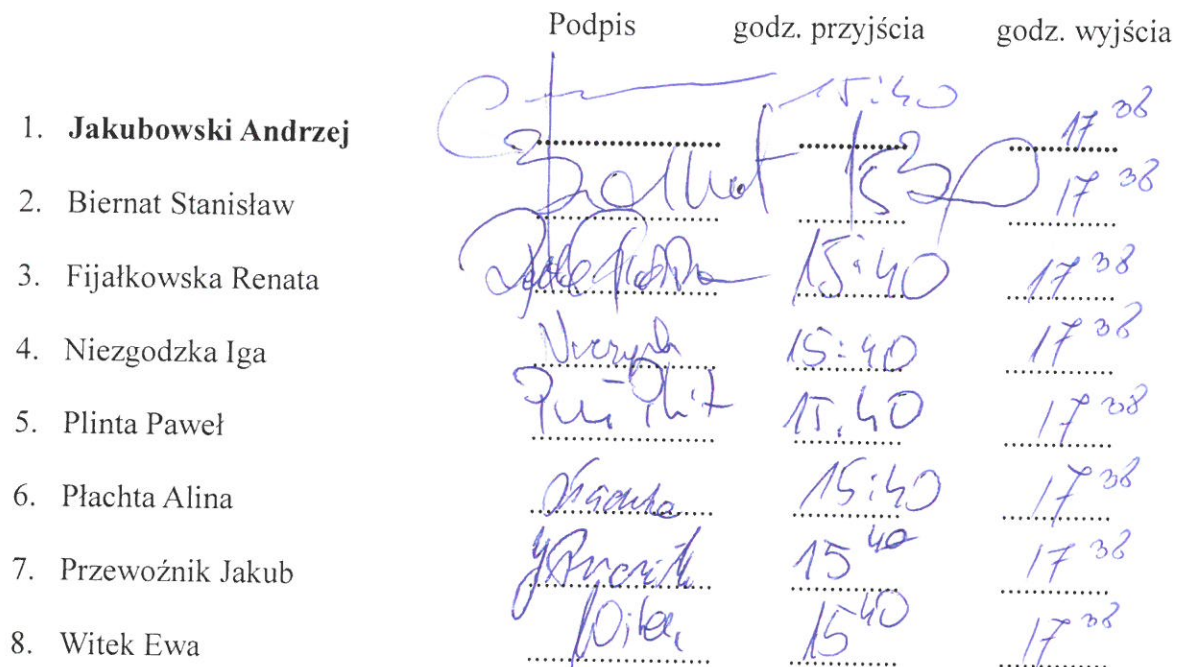 Podpis godz. przyjścia godz. wyjścia
1. Jakubowski Andrzej 15:40 17 38
2. Biernat Stanisław 17 38
3. Fijałkowska Renata 15:40 17 38
4. Niezgodzka Iga 15:40 17 38
5. Plinta Paweł 15.40 17 38
6. Płachta Alina 15:40 17 38
7. Przewoźnik Jakub 15 40 17 38
8. Witek Ewa Witek 15 40 17 38